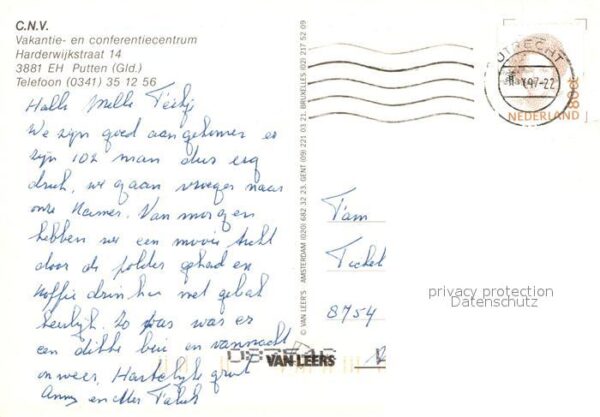 C.N.V.
Vakantie- en conferentiecentrum
Harderwijkstraat 14
3881 EH Putten (Gld.)
Telefoon (0341) 35 12 56
Hallo
We zijn goed aangekomen en
zijn 102 man dus erg
druk, we gaan vroeger naar
onze Kamer. Van morgen
hebben we een mooie tocht
door de polder gehad en
Koffie drinken met gebak
heerlijk. Zo was er
een dikke bui en vannacht
onweer. Hartelijk groet
Anny en
© VAN LEER'S AMSTERDAM (020) 682 32 23, GENT (09) 221 03 21, BRUXELLES (02) 217 52 09
UTRECHT
NEDERLAND
Fam
8754
privacy protection
Datenschutz
VAN LEERS